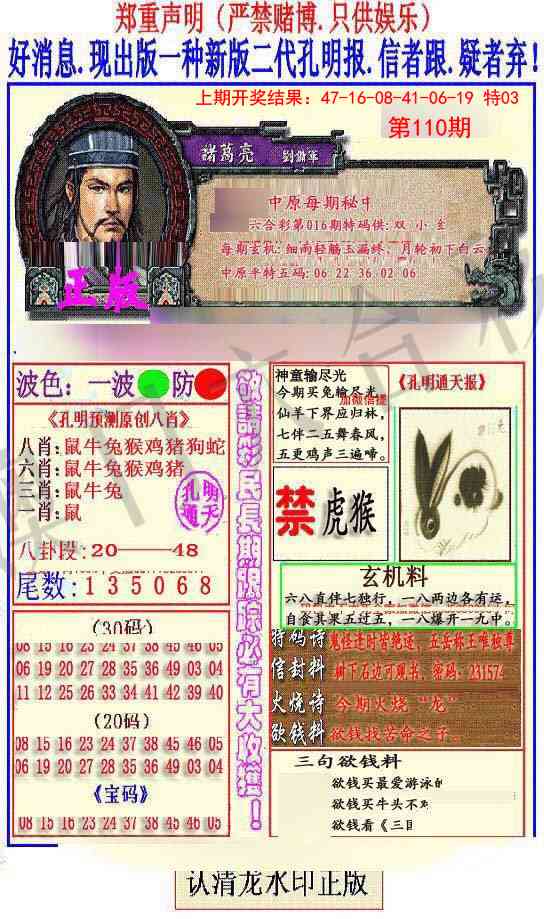 郑重声明（严禁赌博.只供娱乐）
好消息.现出版一种新版二代孔明报.信者跟.疑者弃！
上期开奖结果：47-16-08-41-06-19 特03
第110期
諸葛亮 劉備軍
中原每期秘
六合彩第016期特码供：双 小
每期玄机：细雨轻觞玉漏终，月轮初下白云
中原平特五码：06 22 36 02 06
正版
波色：一波 防
《孔明预测原创八肖》
八肖：鼠牛兔猴鸡猪狗蛇
六肖：鼠牛兔猴鸡猪
三肖：鼠牛兔
一肖：鼠
孔明通天
八卦段：20——48
尾数：135068
(30码)
08 15 16 23 24 37 38 45 46 05
06 19 20 27 28 35 49 03 04
11 12 25 26 33 34 42 39 40
(20码)
08 15 16 23 24 37 38 45 46 05
06 19 20 27 28 35 49 03 04
《宝码》
08 15 16 23 24 37 38 45 46 05
敬請彩民長期跟踪必有大收獲！
神童输尽光
今期买兔输尽光
仙羊下界应归林，
七伴二五舞春风，
五更鸡声三遍啼。
《孔明通天报》
禁 虎猴
玄机料
六八直伴七独行，一八两边各有运，
自食其果五过五，一八爆开一九中。
特码诗 鬼怪逢时皆绝运，五岳称王唯独尊
信封料 树下石边可观书，密码：231574
火烧诗 今期火烧“龙”
欲钱料 欲钱找苦命之子。
三句欲钱料
欲钱买最爱游泳的
欲钱买牛头不
欲钱看《三
认清龙水印正版